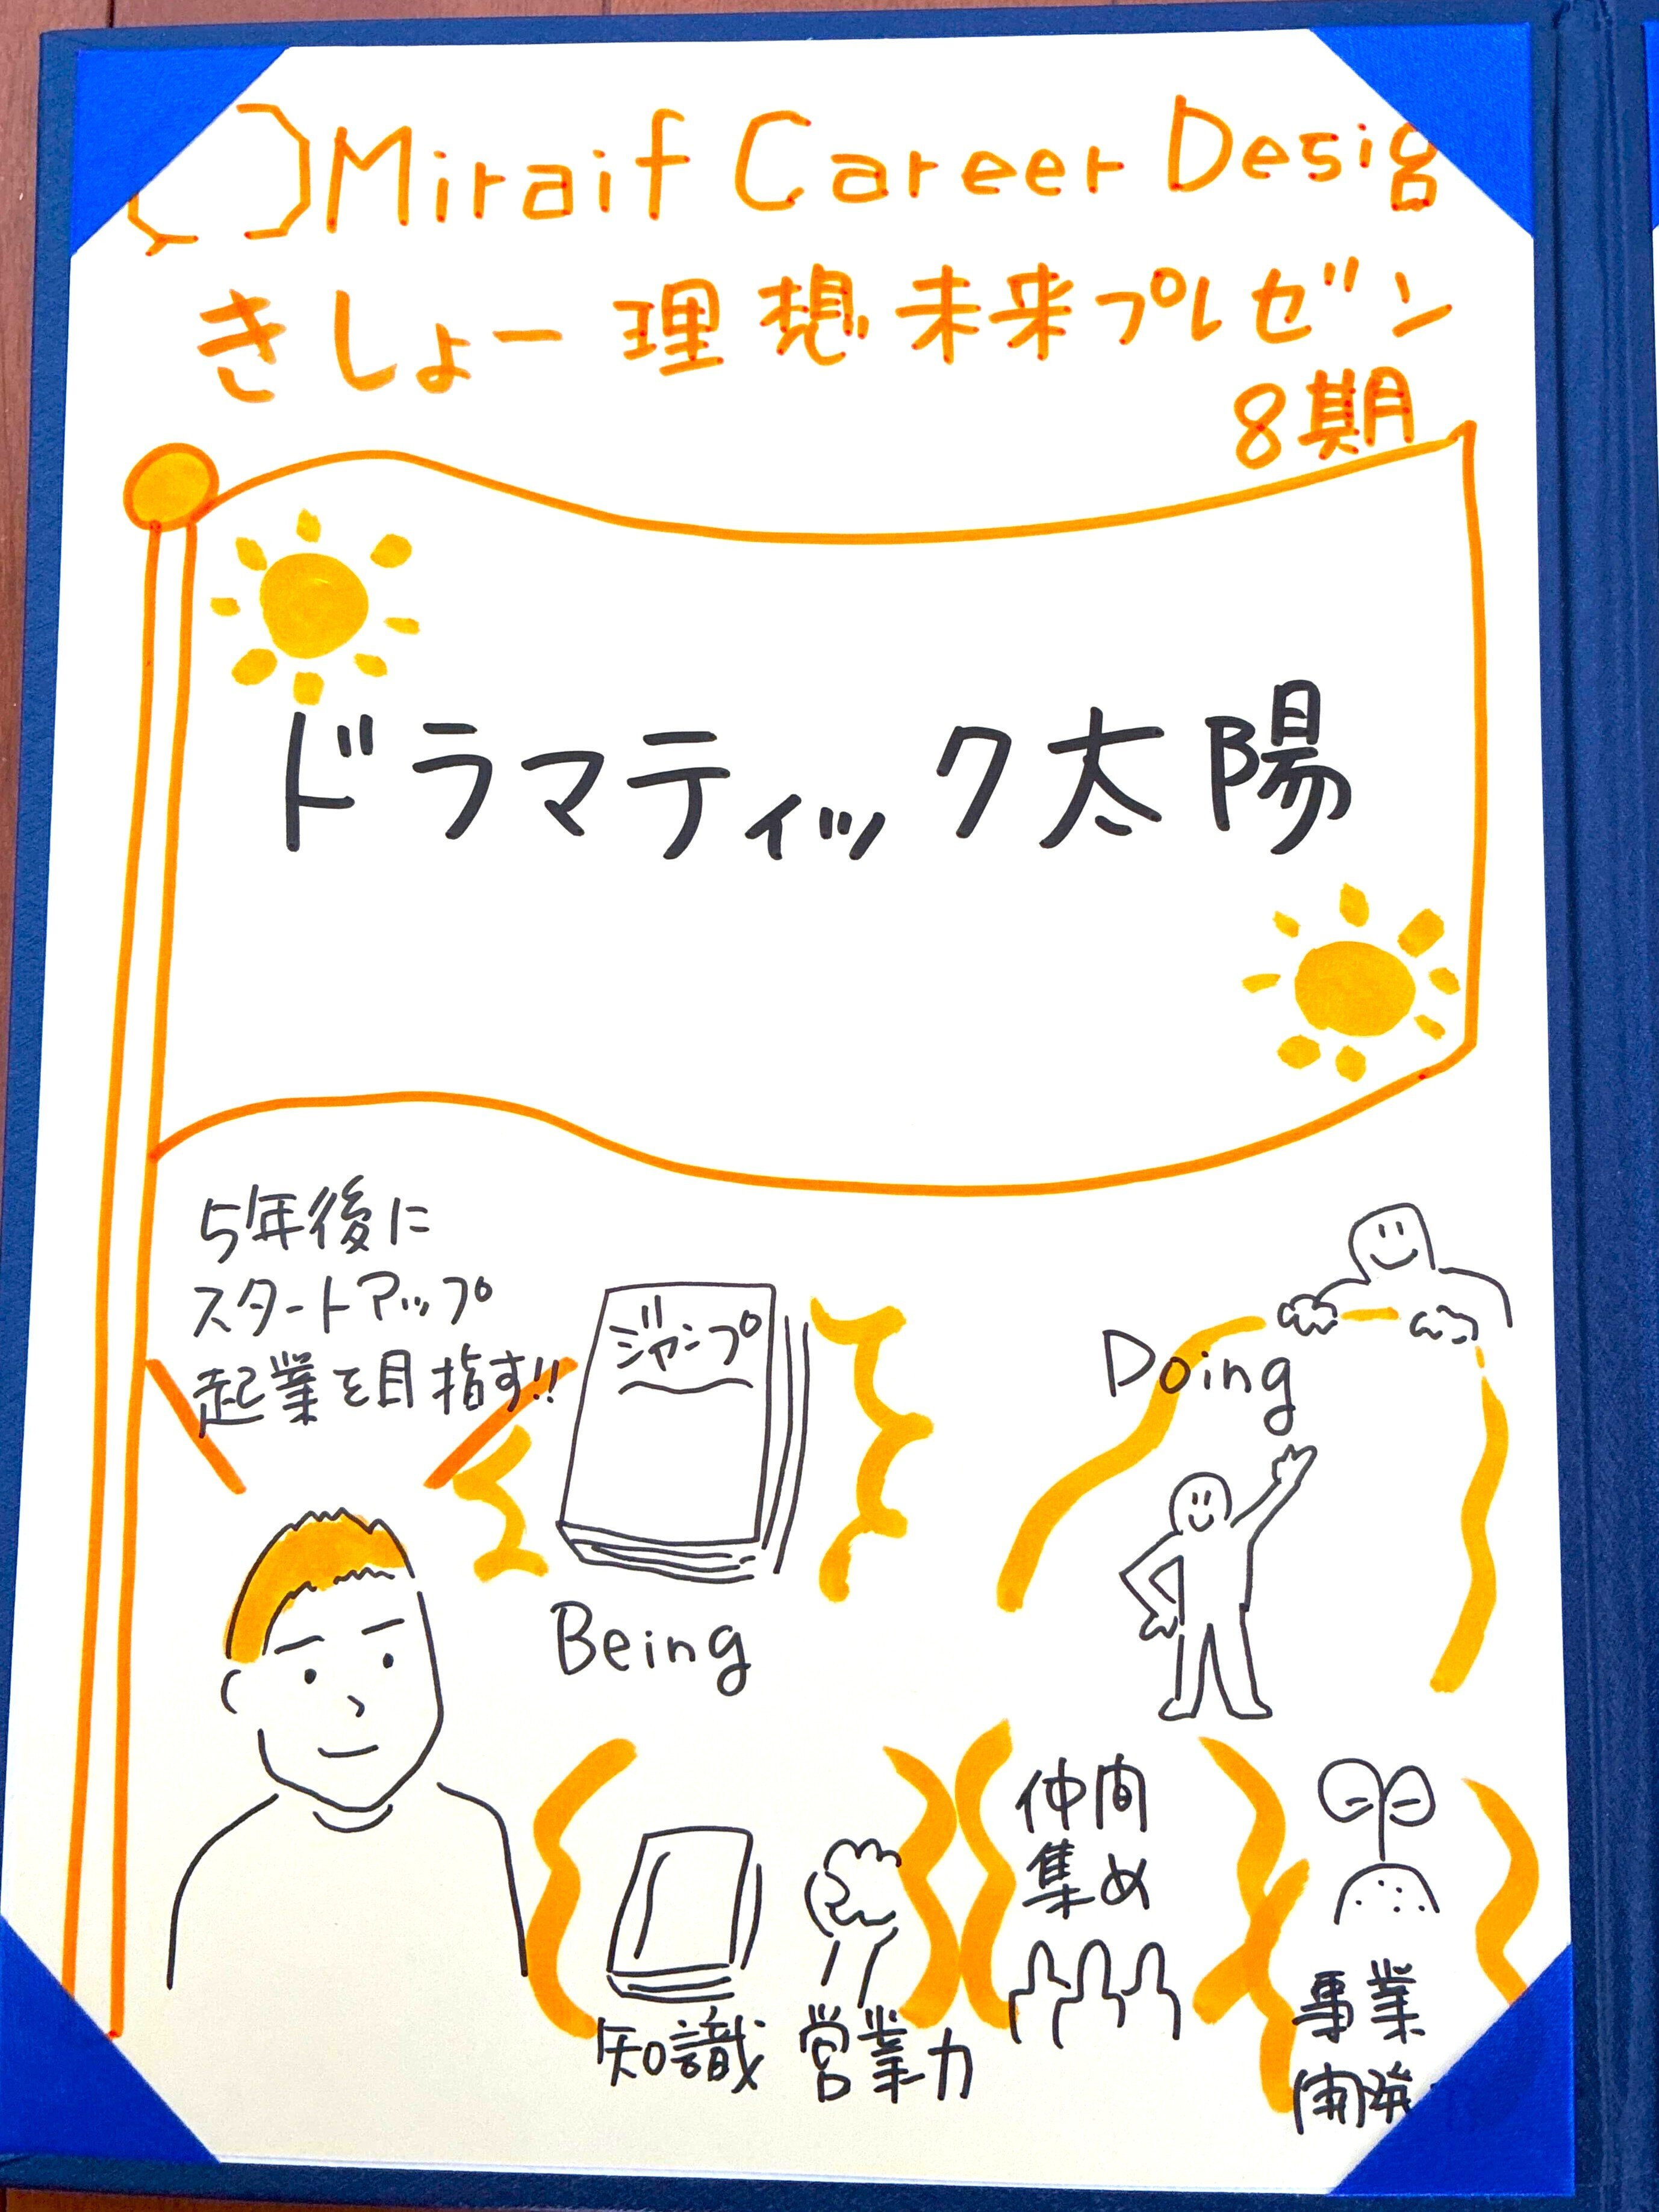 Miraif Career Desig
きしょー理想未来プレゼン
8期
ドラマティック太陽
5年後に
スタートアップ
起業を目指す!!
ジャンプ
Being
Doing
知識
営業力
仲間
集め
事業
開発